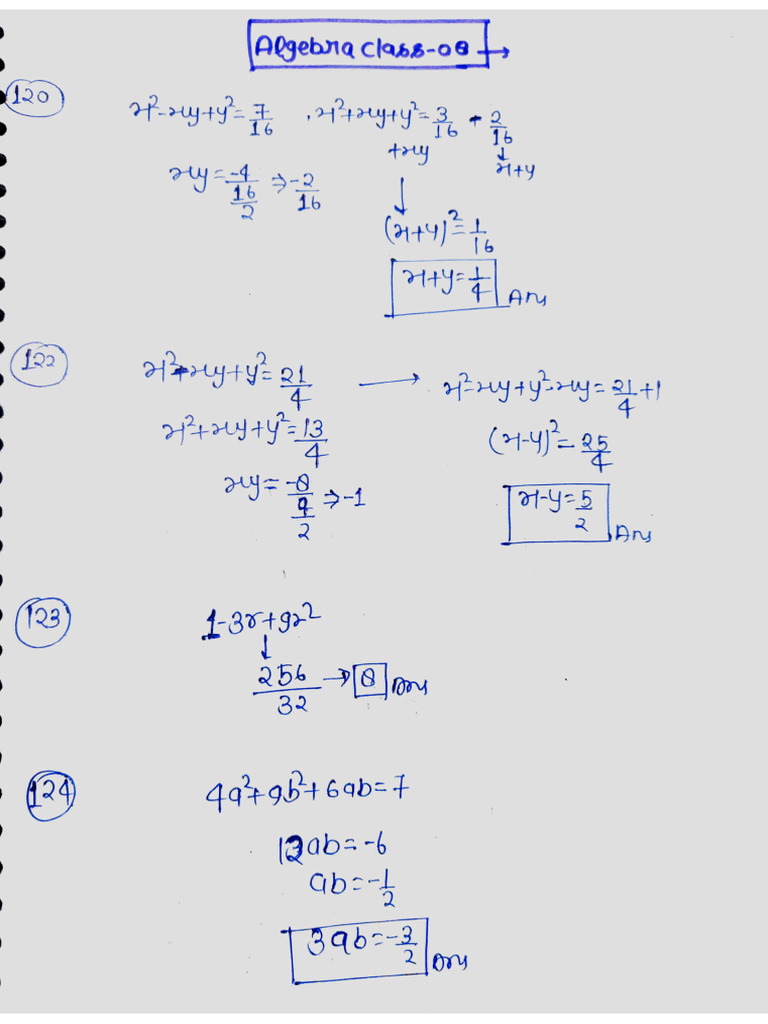 Algebra class-08 →
120
x²-xy+y²=7/16 , x²+xy+y²=3/16 - 2/16
+xy ↓ x+y
xy=-4/16/2 ⇒ -2/16
↓
(x+y)²=1/16
x+y=1/4 Ans
122
x²-xy+y²=21/4 → x²-xy+y²-xy=21/4+1
x²+xy+y²=13/4 (x-y)²=25/4
xy=-8/4/2 ⇒ -1 x-y=5/2 Ans
123
1-3x+9x²
↓
256/32 → 8 Ans
124
4a²+9b²+6ab=7
12ab=-6
ab=-1/2
3ab=-3/2 Ans